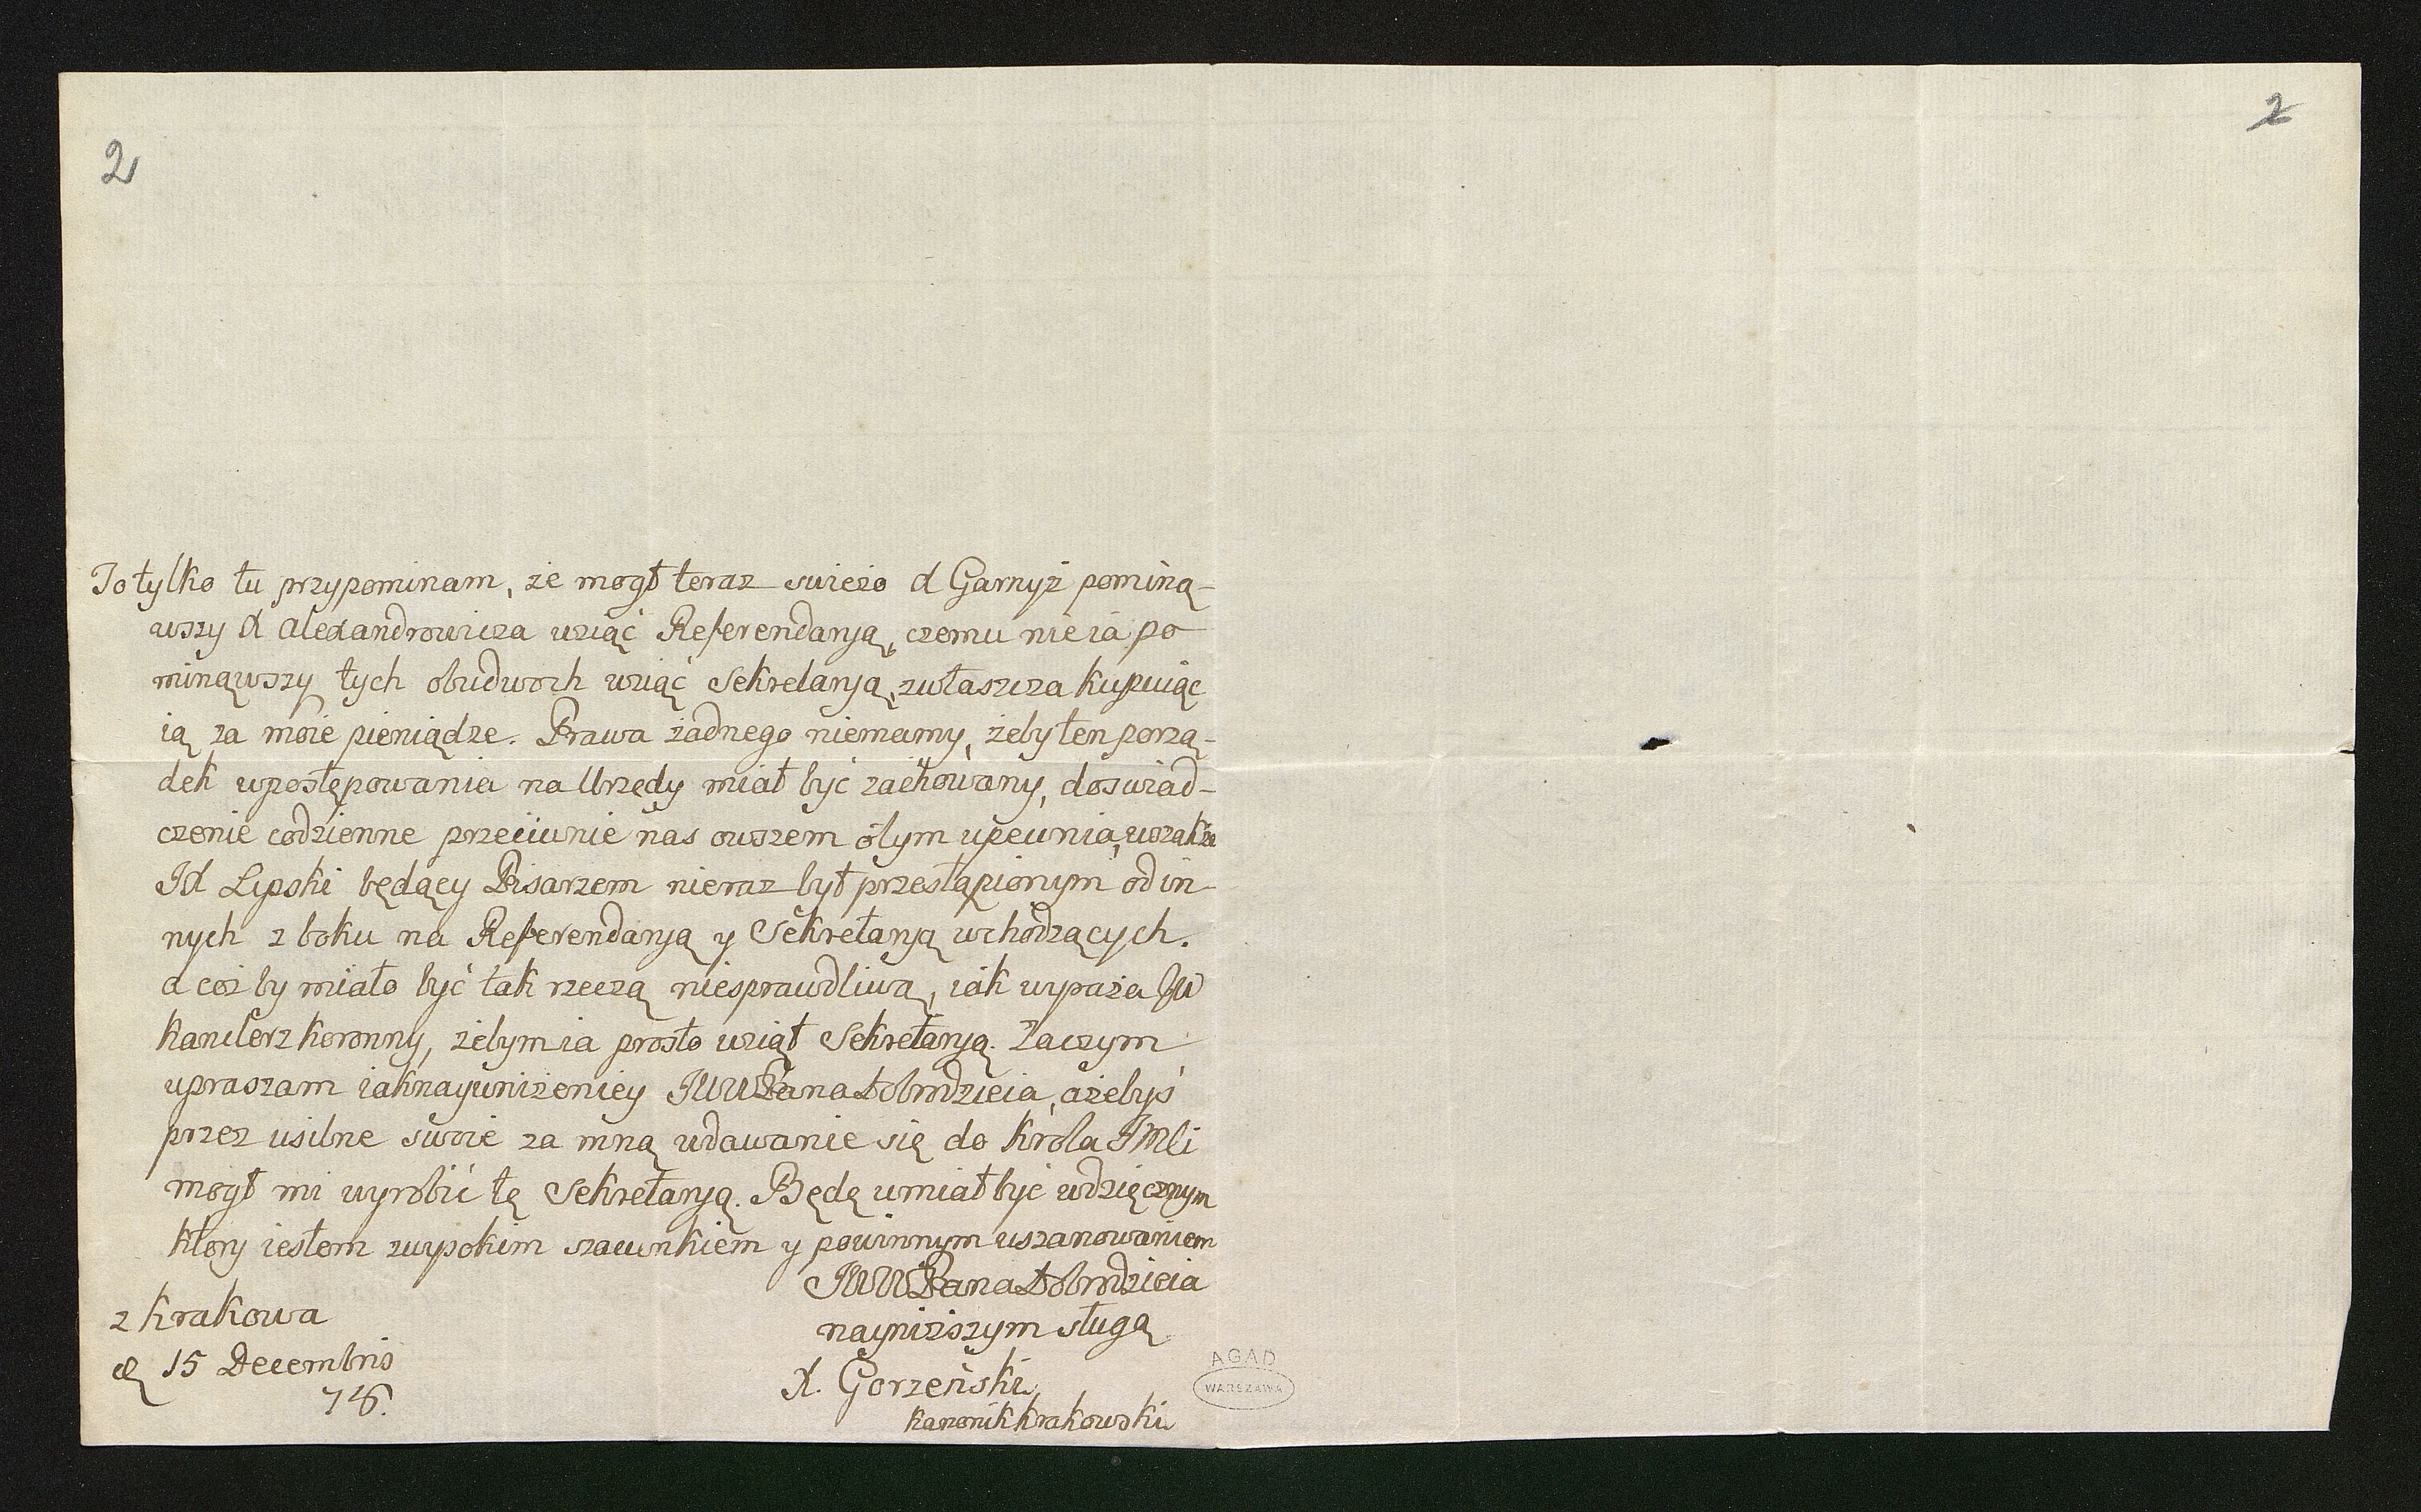 2
2
To tylko tu przypominam, że mogł teraz swieżo X Garnyż pominą-
wszy X Alexandrowicza wziąć Referendaryą, czemu nie ia po
minąwszy tych obudwoch wziąć Sekretaryą, zwłaszcza kupuiąc
ią za moie pieniądze. Prawa żadnego niemamy, żeby ten porzą-
dek wpostępowania na Urzędy miał być zachowany, doswiad-
czenie codzienne przeciwnie nas owszem o tym upewnia, wszakże
JX Lipski będący Pisarzem nieraz był przestąpionym od in-
nych z boku na Referendaryą y Sekretaryą wchodzących.
a coż by miało być tak rzeczą niesprawdliwą, iak wyraża JW
Kanclerz Koronny, żebym ia prosto wziął Sekretaryą. Zaczym
upraszam iaknayuniżeniey JWWPana Dobrodzieia, ażebyś
przez usilne swoie za mną udawanie się do Krola JMCi
mogł mi wyrobić tę Sekretaryą. Będę umiał być wdzięcznym
ktory iestem zwysokim szacunkiem y powinnym uszanowaniem
JWWPana Dobrodzieia
nayniższym sługą
z Krakowa
X. Gorzeński
d 15 Decembris
Kanonik Krakowski
AGAD
WARSZAWA